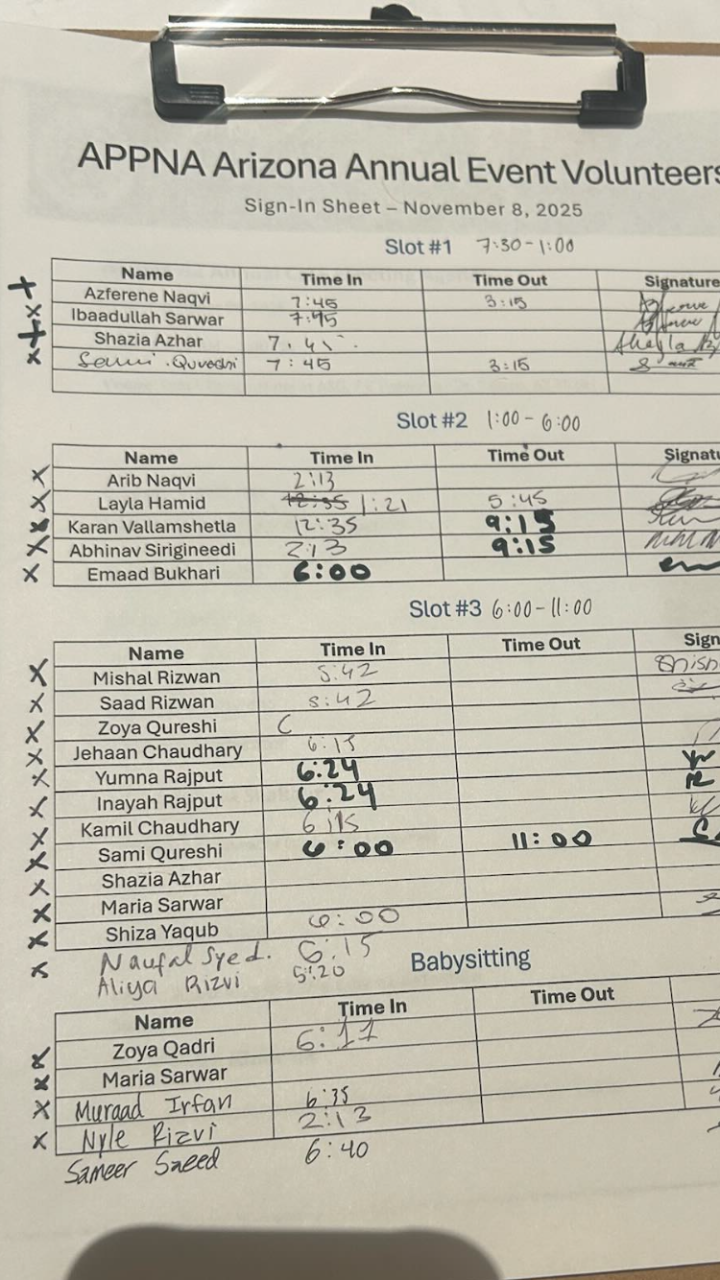 APPNA Arizona Annual Event Volunteers
Sign-In Sheet – November 8, 2025
Slot #1 7:30-1:00
Name Time In Time Out Signature
Azferene Naqvi 7:45 3:15
Ibaadullah Sarwar 7:45
Shazia Azhar 7.45
Sami Qureshi 7:45 3:15
Slot #2 1:00-6:00
Name Time In Time Out Signatu
Arib Naqvi 2:13
Layla Hamid 12:35 1:21 5:45
Karan Vallamshetla 12:35 9:15
Abhinav Sirigineedi 2:13 9:15
Emaad Bukhari 6:00
Slot #3 6:00-11:00
Name Time In Time Out Sign
Mishal Rizwan 5:42 Mish
Saad Rizwan 5:42
Zoya Qureshi
Jehaan Chaudhary 6:15
Yumna Rajput 6:24 YR
Inayah Rajput 6:24 IR
Kamil Chaudhary 6:15
Sami Qureshi 6:00 11:00
Shazia Azhar
Maria Sarwar
Shiza Yaqub 6:00
Naufal Syed. 6:15
Aliya Rizvi 5:20
Babysitting
Name Time In Time Out
Zoya Qadri 6:11
Maria Sarwar
Muraad Irfan 6:35
Nyle Rizvi 2:13
Sameer Saeed 6:40